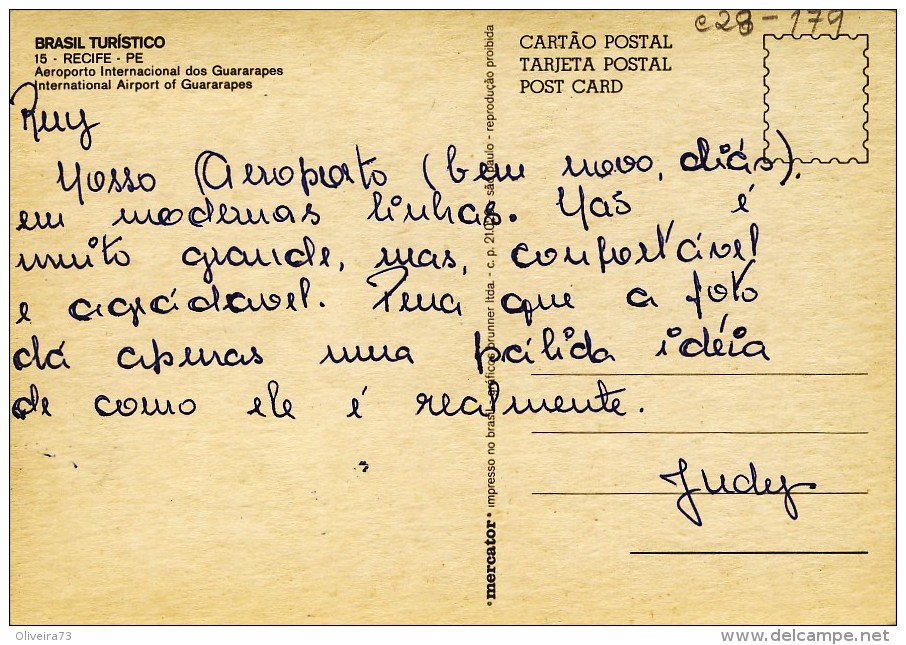 c28-179
BRASIL TURÍSTICO
15 - RECIFE - PE
Aeroporto Internacional dos Guararapes
International Airport of Guararapes
CARTÃO POSTAL
TARJETA POSTAL
POST CARD
Ruy
Nosso Aeroporto (bem novo, aliás),
em modernas linhas. Não é
muito grande, mas, confortável
e agradável. Pena que a foto
dá apenas uma pálida idéia
de como ele é realmente.
Judy
mercator • impresso no brasil - gráficos brunner ltda. - c. p. são paulo - reprodução proibida
Oliveira73
www.delcampe.net